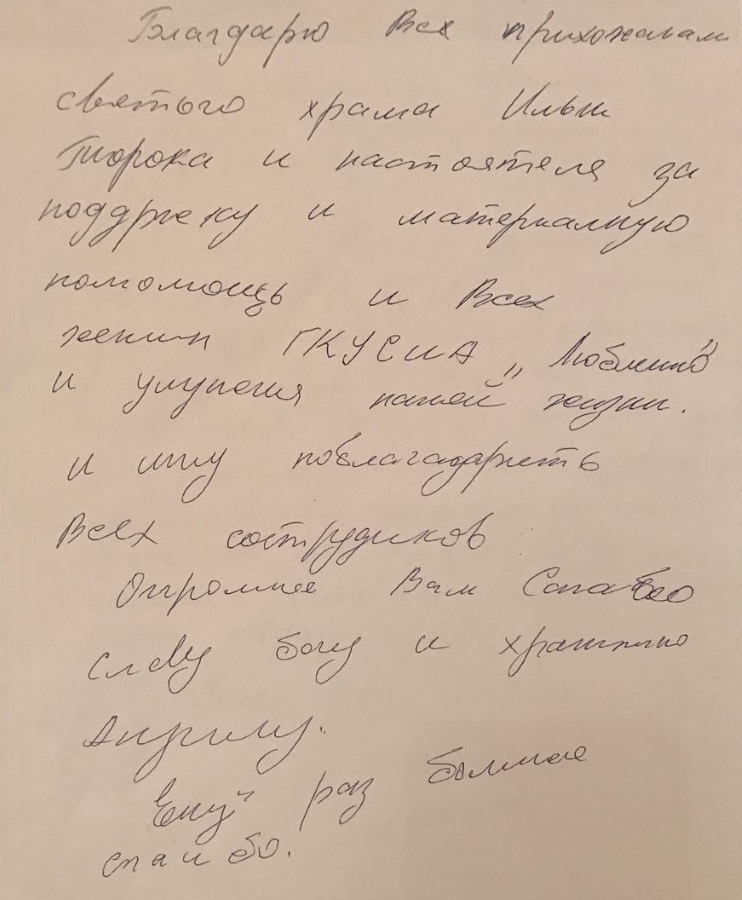 Благдарю Всех прихожанам
святого храма Ильи
Пророка и настоятеля за
поддржку и материалную
помомощь и Всех
женин ГКУСИА „Люблино"
и улупения нашей жизни.
и ищу поблагадарить
Всех сотрудиков
Огромнее Вам Спасабо
Славу богу и
Ещу раз больщое
спаибо.